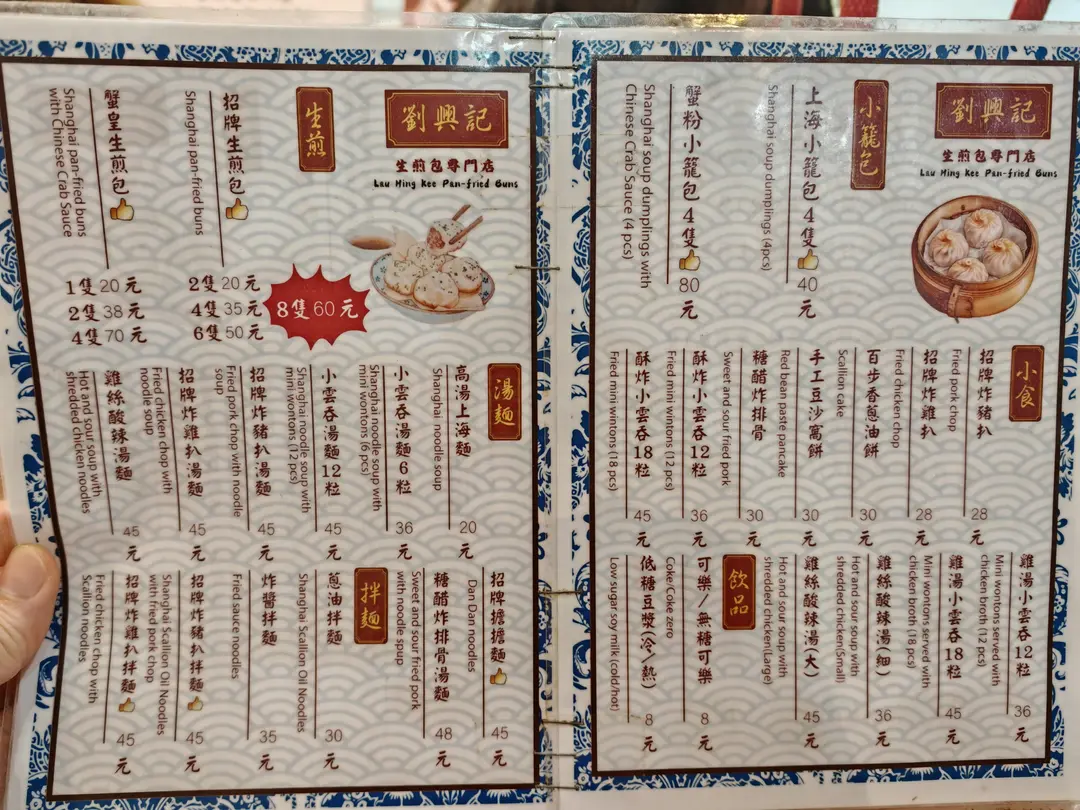 劉興記
生煎包專門店
Lau Hing Kee Pan-fried Buns
生煎
招牌生煎包
Shanghai pan-fried buns
2隻20元
4隻35元
6隻50元
8隻60元
蟹皇生煎包
Shanghai pan-fried buns
with Chinese Crab Sauce
1隻20元
2隻38元
4隻70元
湯麵
高湯上海麵
Shanghai noodle soup
20元
小雲吞湯麵6粒
Shanghai noodle soup with
mini wontons (6 pcs)
36元
小雲吞湯麵12粒
Shanghai noodle soup with
mini wontons (12 pcs)
45元
招牌炸豬扒湯麵
Fried pork chop with noodle
soup
45元
招牌炸雞扒湯麵
Fried chicken chop with
noodle soup
45元
雞絲酸辣湯麵
Hot and sour soup with
shredded chicken noodles
45元
招牌擔擔麵
Dan Dan noodles
45元
糖醋炸排骨湯麵
Sweet and sour fried pork
with noodle soup
48元
拌麵
蔥油拌麵
Shanghai Scallion Oil Noodles
30元
炸醬拌麵
Fried sauce noodles
35元
招牌炸豬扒拌麵
Shanghai Scallion Oil Noodles
with fried pork chop
45元
招牌炸雞扒拌麵
Fried chicken chop with
Scallion noodles
45元
劉興記
生煎包專門店
Lau Hing Kee Pan-fried Buns
小籠包
上海小籠包4隻
Shanghai soup dumplings (4pcs)
40元
蟹粉小籠包4隻
Shanghai soup dumplings with
Chinese Crab Sauce (4 pcs)
80元
小食
招牌炸豬扒
Fried pork chop
28元
招牌炸雞扒
Fried chicken chop
28元
百步香蔥油餅
Scallion cake
30元
手工豆沙窩餅
Red bean paste pancake
30元
糖醋炸排骨
Sweet and sour fried pork
30元
酥炸小雲吞12粒
Fried mini wintons (12 pcs)
36元
酥炸小雲吞18粒
Fried mini wintons (18 pcs)
45元
雞湯小雲吞12粒
Mini wontons served with
chicken broth (12 pcs)
36元
雞湯小雲吞18粒
Mini wontons served with
chicken broth (18 pcs)
45元
雞絲酸辣湯(細)
Hot and sour soup with
shredded chicken(Small)
36元
雞絲酸辣湯(大)
Hot and sour soup with
shredded chicken(Large)
45元
飲品
可樂/無糖可樂
Coke/Coke zero
8元
低糖豆漿(冷/熱)
Low sugar soy milk (cold/hot)
8元